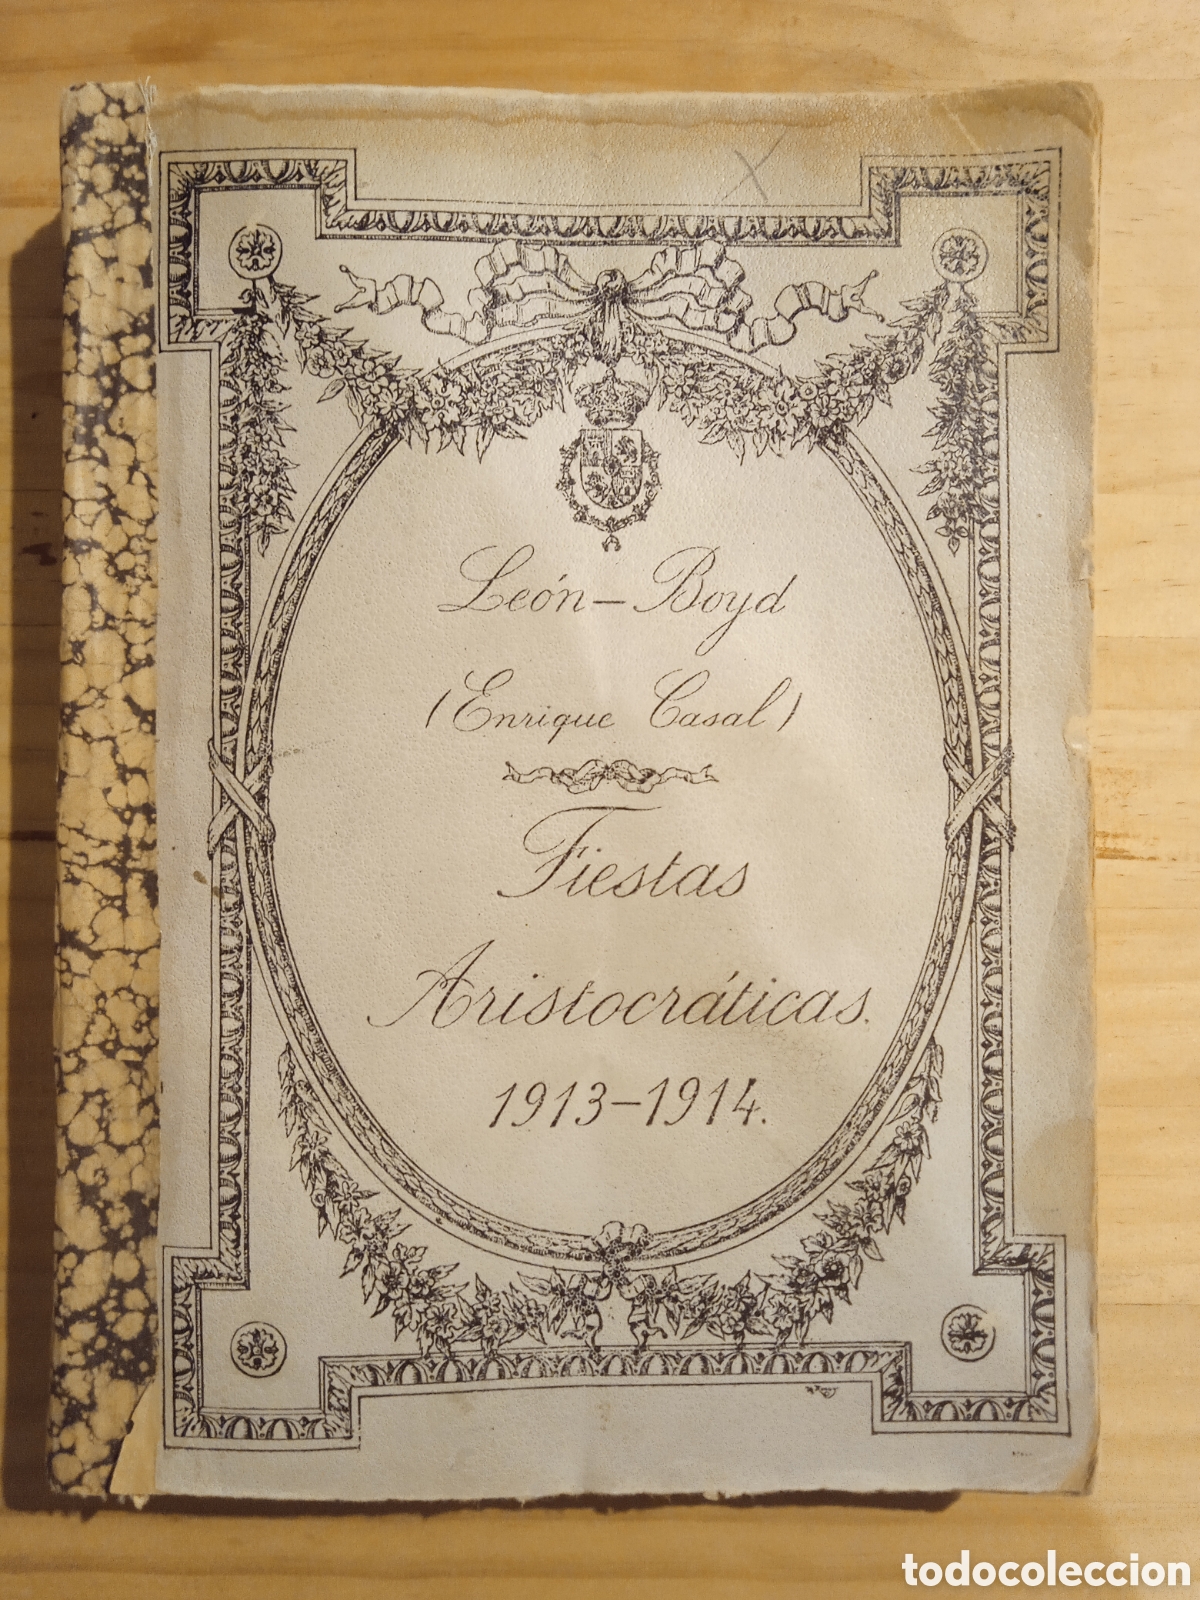 León-Boyd
(Enrique Casal)
Fiestas
Aristocráticas.
1913-1914.
todocoleccion